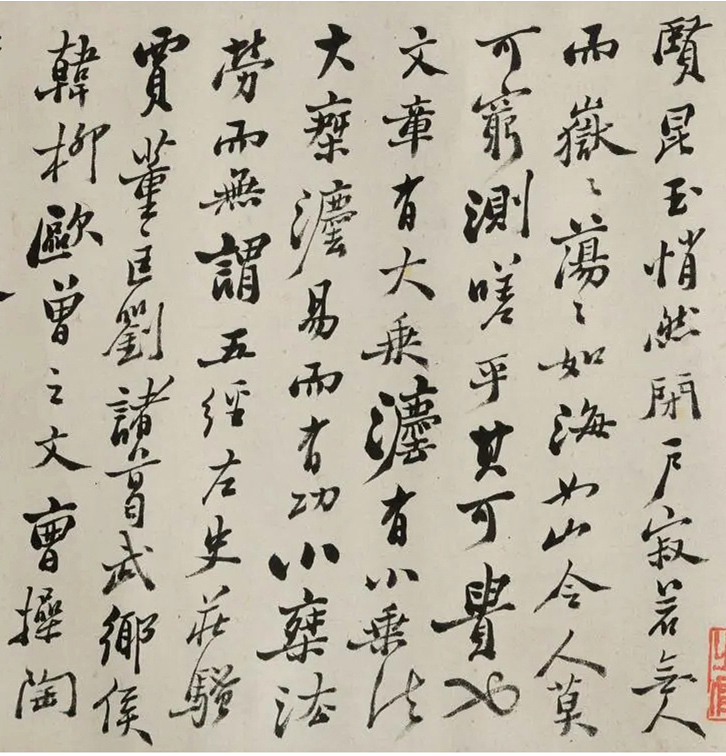 賢昆玉悄然閉戶寂若無人
而嶽〻蕩〻如海如山令人莫
可窮測嗟乎其可貴也
文章有大乘灋有小乘法
大乘灋易而有功小乘法
勞而無謂五經左史莊騷
賈董匡劉諸葛武鄉侯
韓柳歐曾之文曹操陶